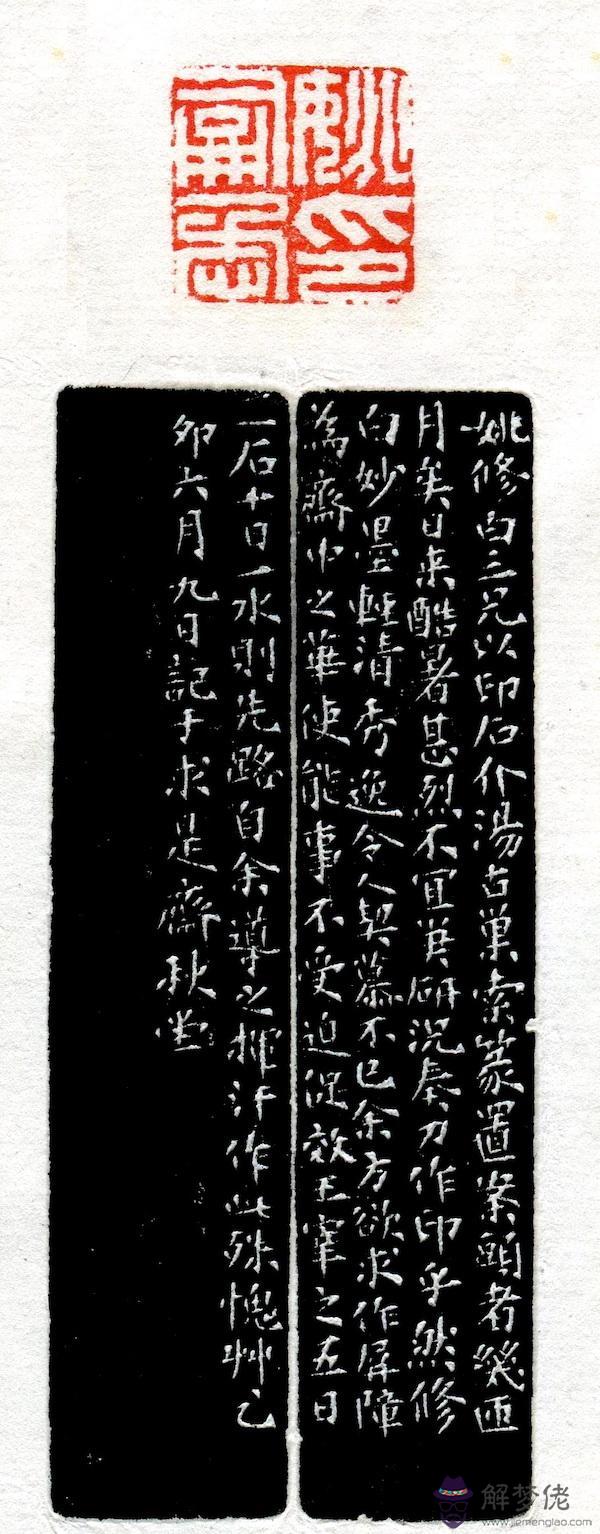 姚印
姚修白三兄以印石介湯古巢索篆置案頭者幾匝
月矣日來酷暑甚烈不宜筆硏況奏刀作印乎然修
白妙墨輕清秀逸令人契慕不已余方欲求作屏障
為齋中之華使能事不受迫促效王宰之五日
一石十日一水則先路自余導之揮汗作此殊愧艸乙
卯六月九日記于求是齋秋堂
解梦佬
www.jiemenglao.com